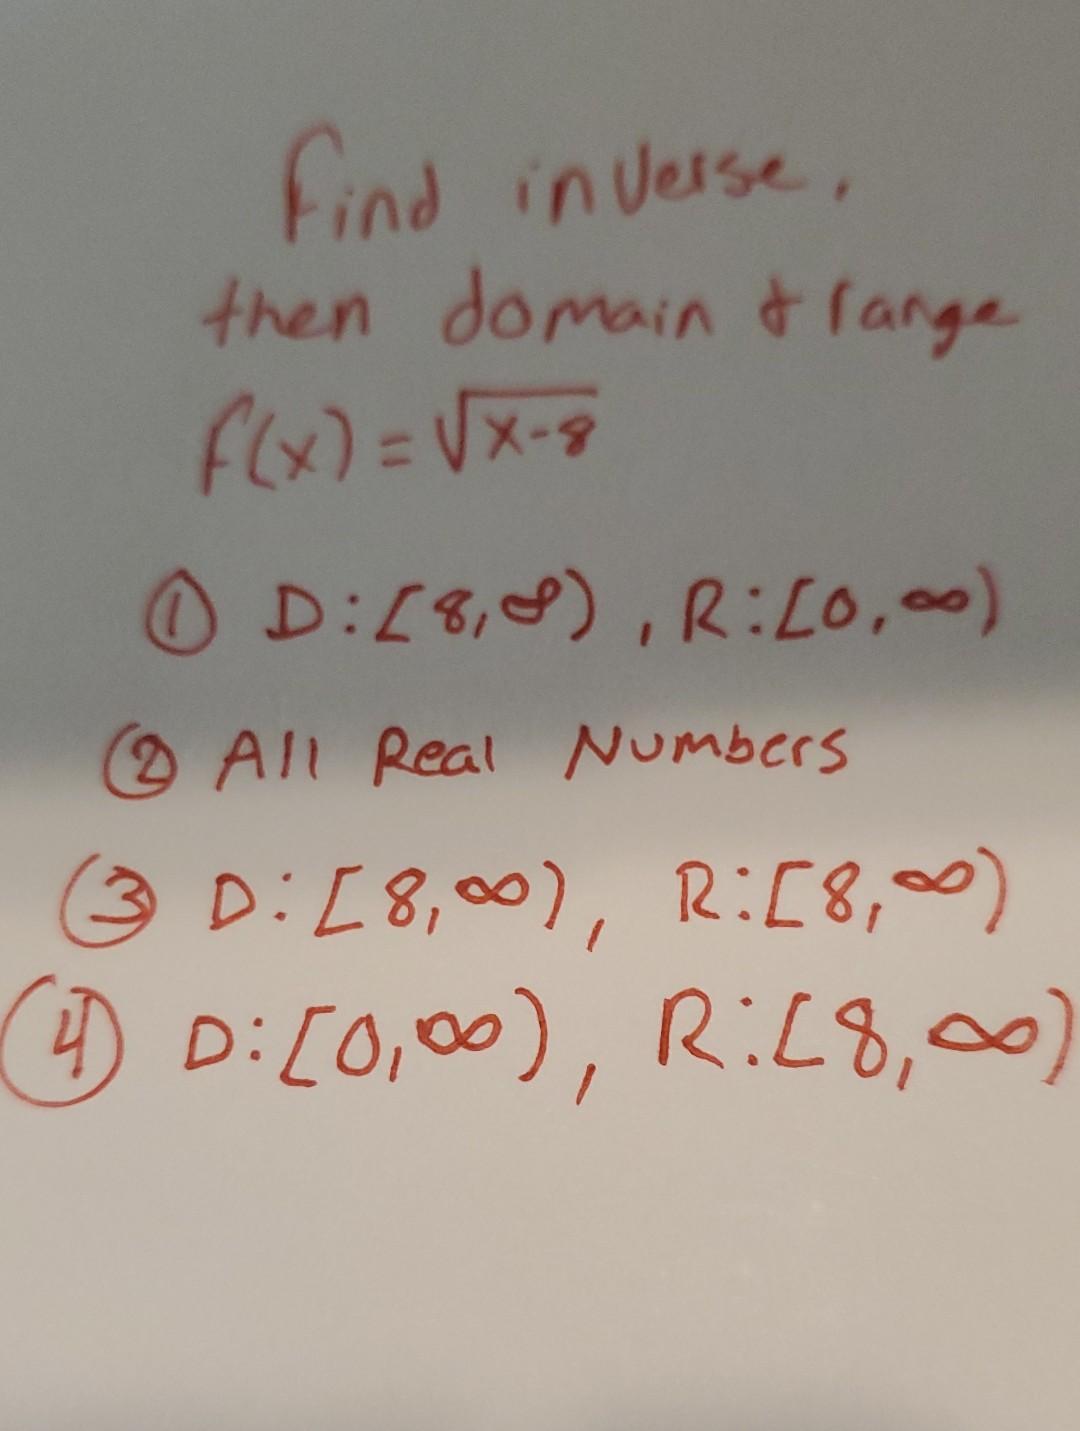 Find inverse,
then domain & range
f(x) = √x-8
① D:[8,∞), R:[0,∞)
② All Real Numbers
③ D:[8,∞), R:[8,∞)
④ D:[0,∞), R:[8,∞)